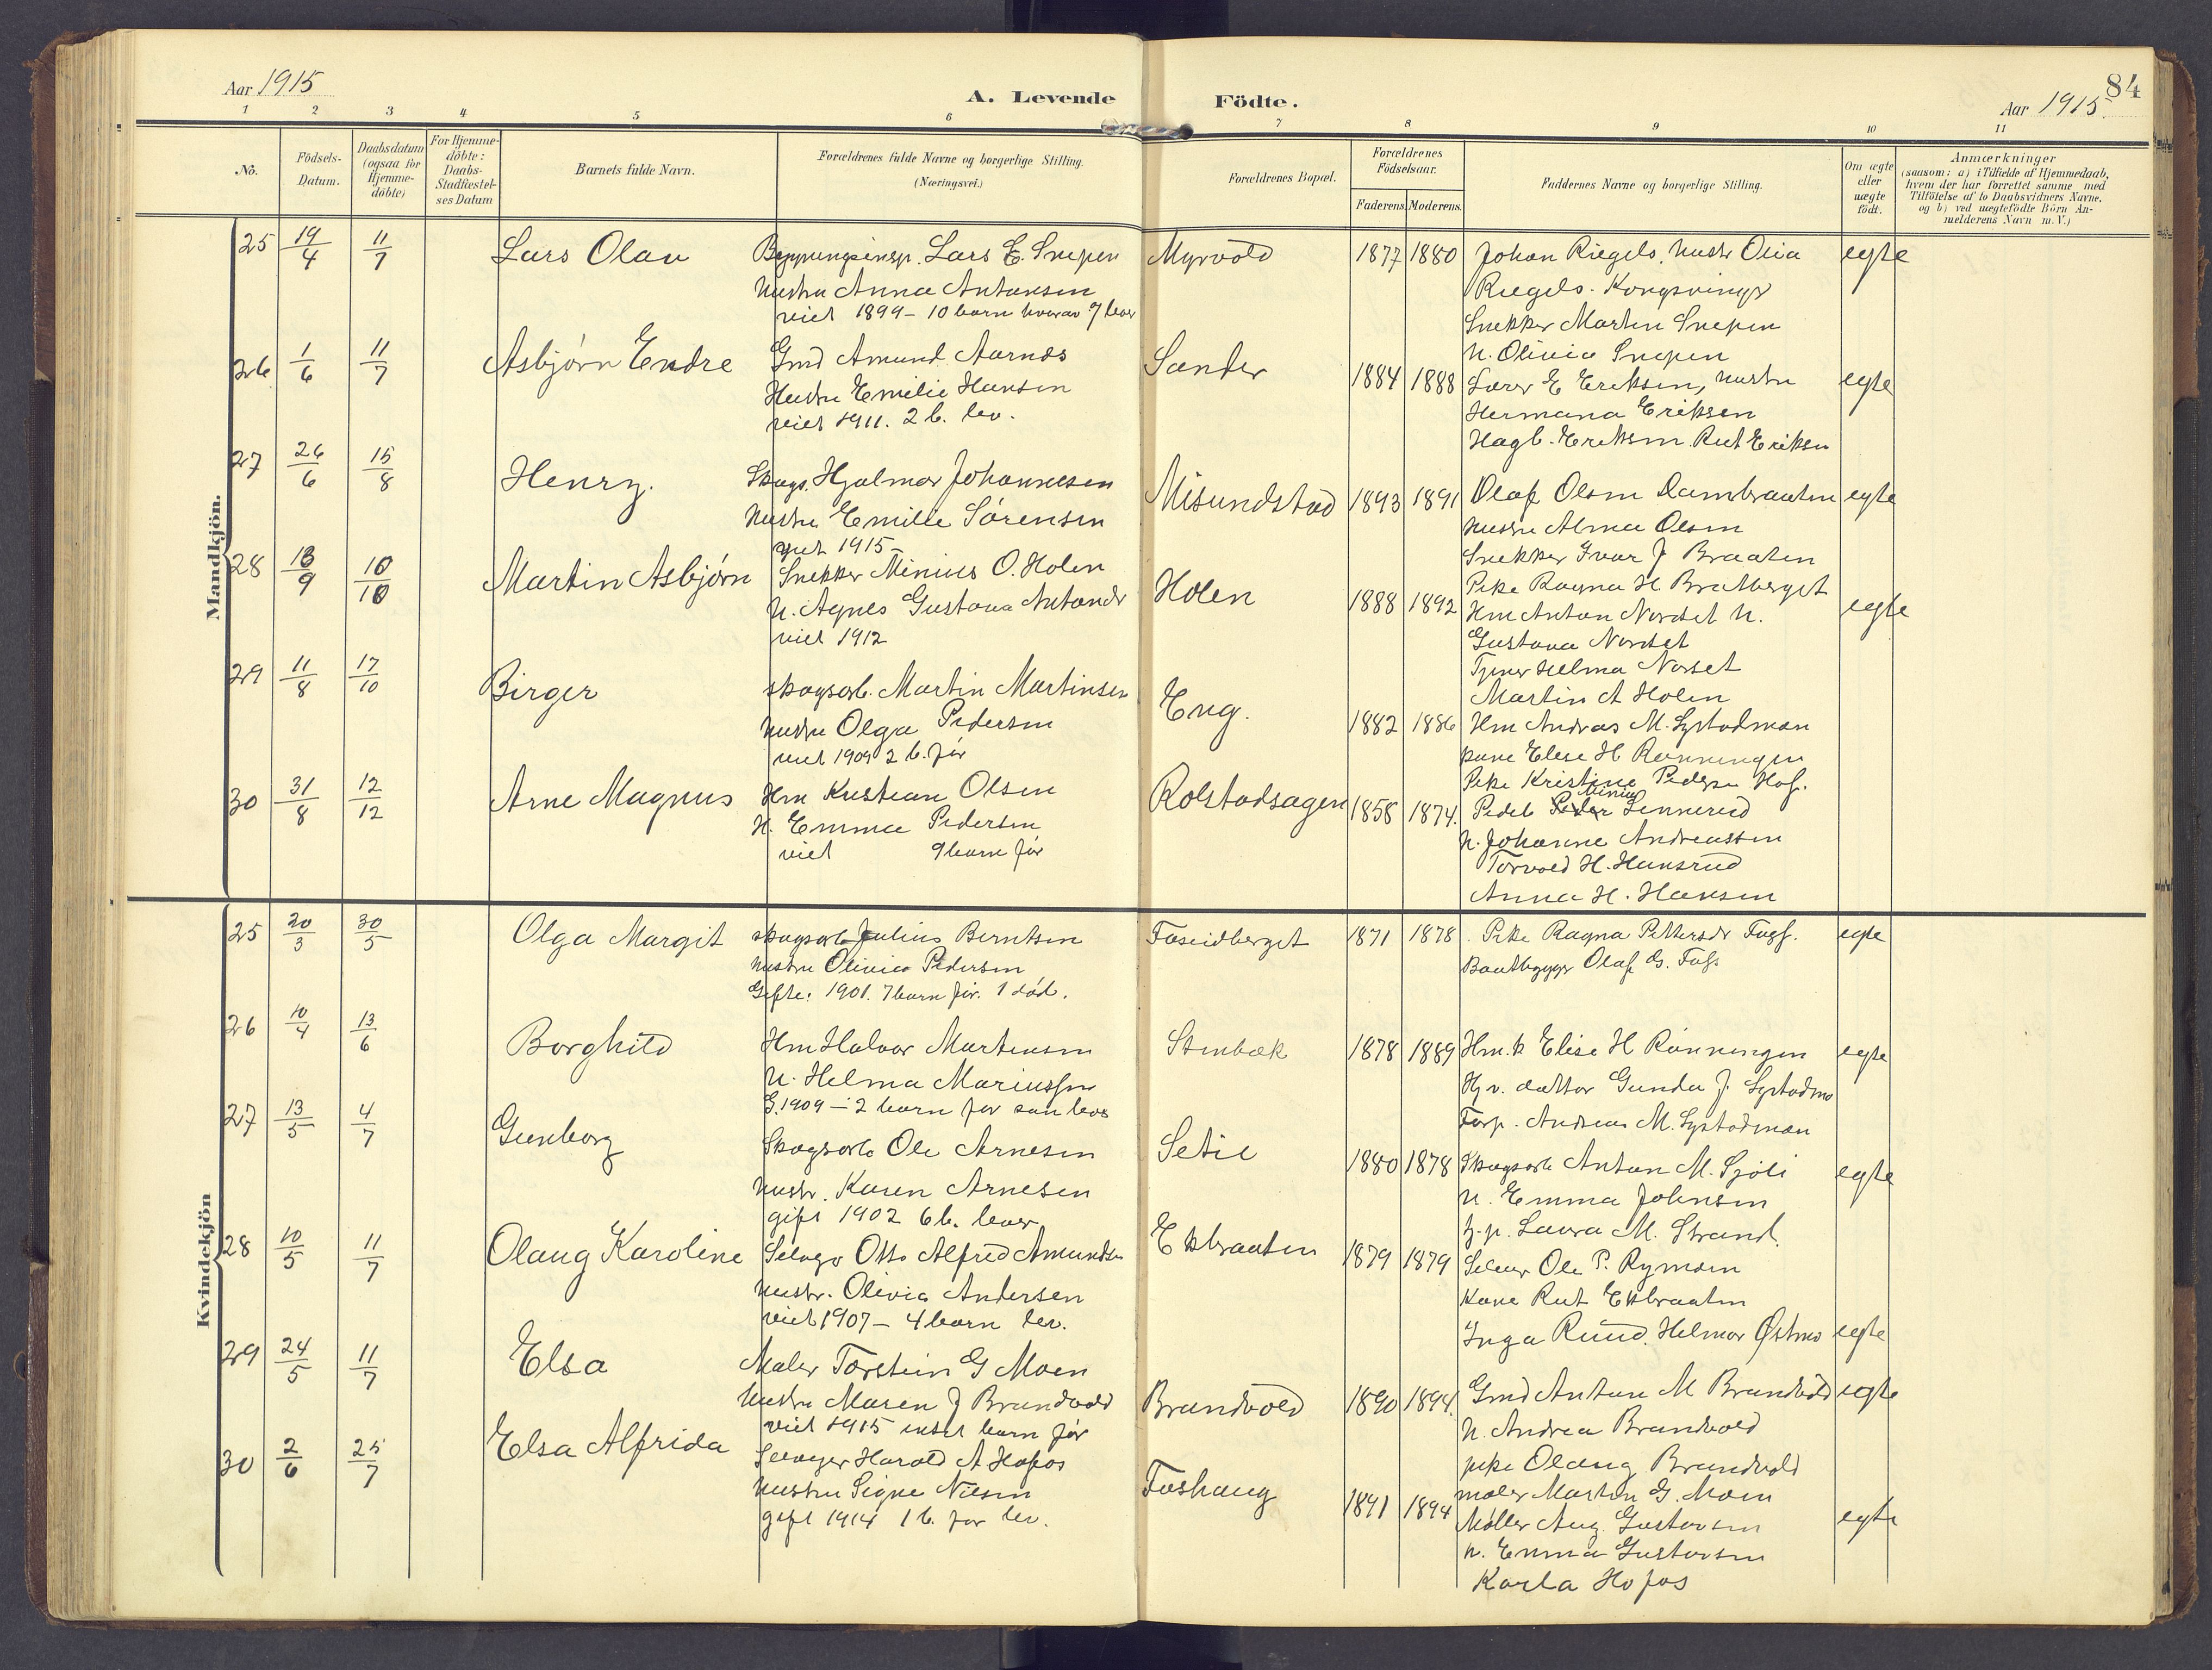 Aar 1915
A. Levende Födte.
Aar 1915.
84
1 2 3 4 5 6 7 8 9 10 11
No.
Födsels-Datum.
Daabsdatum (ogsaa for Hjemme-döbte)
For Hjemme-döbte: Daabs-Stadfæstel-ses Datum
Barnets fulde Navn.
Forældrenes fulde Navne og borgerlige Stilling.
(Næringsvei.)
Forældrenes Bopæl.
Forældrenes Födselsaar.
Faderens. Moderens.
Faddernes Navne og borgerlige Stilling.
Om ægte eller uægte födt.
Anmærkninger
(saasom: a) i Tilfælde af Hjemmedaab,
hvem der har forrettet samme med
Tilföielse af to Daabsvidners Navne,
og b) ved uægtefödte Börn An-
melderens Navn m. V.)
Mandkjön.
25 19/4 11/7 Lars Olav
Lars E. Snepen
Hustru Anna Antonsen
viet 1899 - 10 barn hvorav 7 lever
Myrvold 1877 1880
Johan Riegels, hustr Olia
Riegels. Kongsvinger
Snekker Martin Snepen
H. Olivia Snepen
egte
26 1/6 11/7 Asbjørn Endre
Gmd Amund Aarnes
Hustru Emilie Hansen
viet 1911. 2 b. lev.
Sander 1884 1888
Lærer E Eriksen, hustru
Hermana Eriksen
Hagb. Eriksen. Rut Eriksen
egte
27 26/6 15/8 Henry.
Skogs. Hjalmar Johannesen
Hustru Emilie Sørensen
viet 1915
Misundstad 1893 1891
Olaf Olsen Dambraaten
hustru Alma Olsen
Snekker Ivar J Braaten
Pike Ragna H. Bratberget
egte
28 18/9 10/10 Martin Asbjørn
Snekker Minius O. Holen
H. Agnes Gustava Antondr
viet 1912
Holen 1888 1892
Hm Anton Nordset H.
Gustava Nordset
Tjener Helma Norset
Martin A Holen
egte
29 11/8 17/10 Birger
skogsarb. Martin Martinsen
hustru Olga Pedersen
viet 1909 2 b. før
Eng. 1882 1886
Hm Andreas M. Systadmoen
kone Elise H Rønningen
Pike Kristine Pedersen Hof.
30 31/8 12/12 Arne Magnus
Hm Kristian Olsen
H. Emma Pedersen
viet 9 barn før
Rolstadsagen 1858 1874.
Minius Linnerud
H. Johanne Andreassen
Torvald H. Hansrud
Anna H. Hansen
Kvindekjön
25 20/3 30/5 Olga Margit
skogsarb Julius Berntsen
hustru Olivia Pedersen
Gifte: 1901. 7 barn før. 1 død.
Foseidberget 1871 1878
Pike Ragna Pettersdr
Baatbygger Olaf G.
egte
26 10/4 13/6 Borghild
Hm Halvor Martinsen
H. Helma Mariussen
G. 1909 - 2 barn før som lever
Stenbæk 1878 1889
Hm. k Elise H Rønningen
Hjv. datter Gunda J. Systadmo
Forp. Andreas M. Systadmoen
egte
27 13/5 4/7 Gunborg
Skogsarb Ole Arnesen
hustr. Karen Arnesen
gift 1902 6 b. lever
Setie 1880 1878
Skogsarb Anton M. Sjøli
H. Emma Johnsen
Laura M. Strand.
egte
28 10/5 11/7 Olaug Karoline
Selvejer Otto Alfred Amundsen
Hustr. Olivia Andersen
viet 1907 - 4 barn lev.
Ekbraaten 1879 1879
Selveier Ole P. Rymoen
Kone Rut Ekbraaten
Inga Ruud. Helmar Østmo
egte
29 24/5 11/7 Elsa
Maler Torstein G Moen
Hustru Maren J Brandvold
viet 1915 intet barn før
Brandvold 1890 1894.
Gmd Anton M Brandvold
H. Andrea Brandvold
pike Olaug Brandvold
maler Martin G. Moen
egte
30 2/6 25/7 Elsa Alfrida
Selveier Harald A Hofos
Hustru Signe Nilsen
gift 1914 1 b. før lev.
Foshaug 1891 1894
Møller Aug. Gustavsen
H. Emma Gustavsen
Karla Hofos
egte